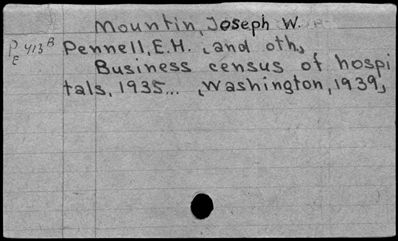 Mountin, Joseph W.
P 413 B Pennell, E.H. , and oth,
E
Business census of hospi
tals, 1935... , Washington, 1939,